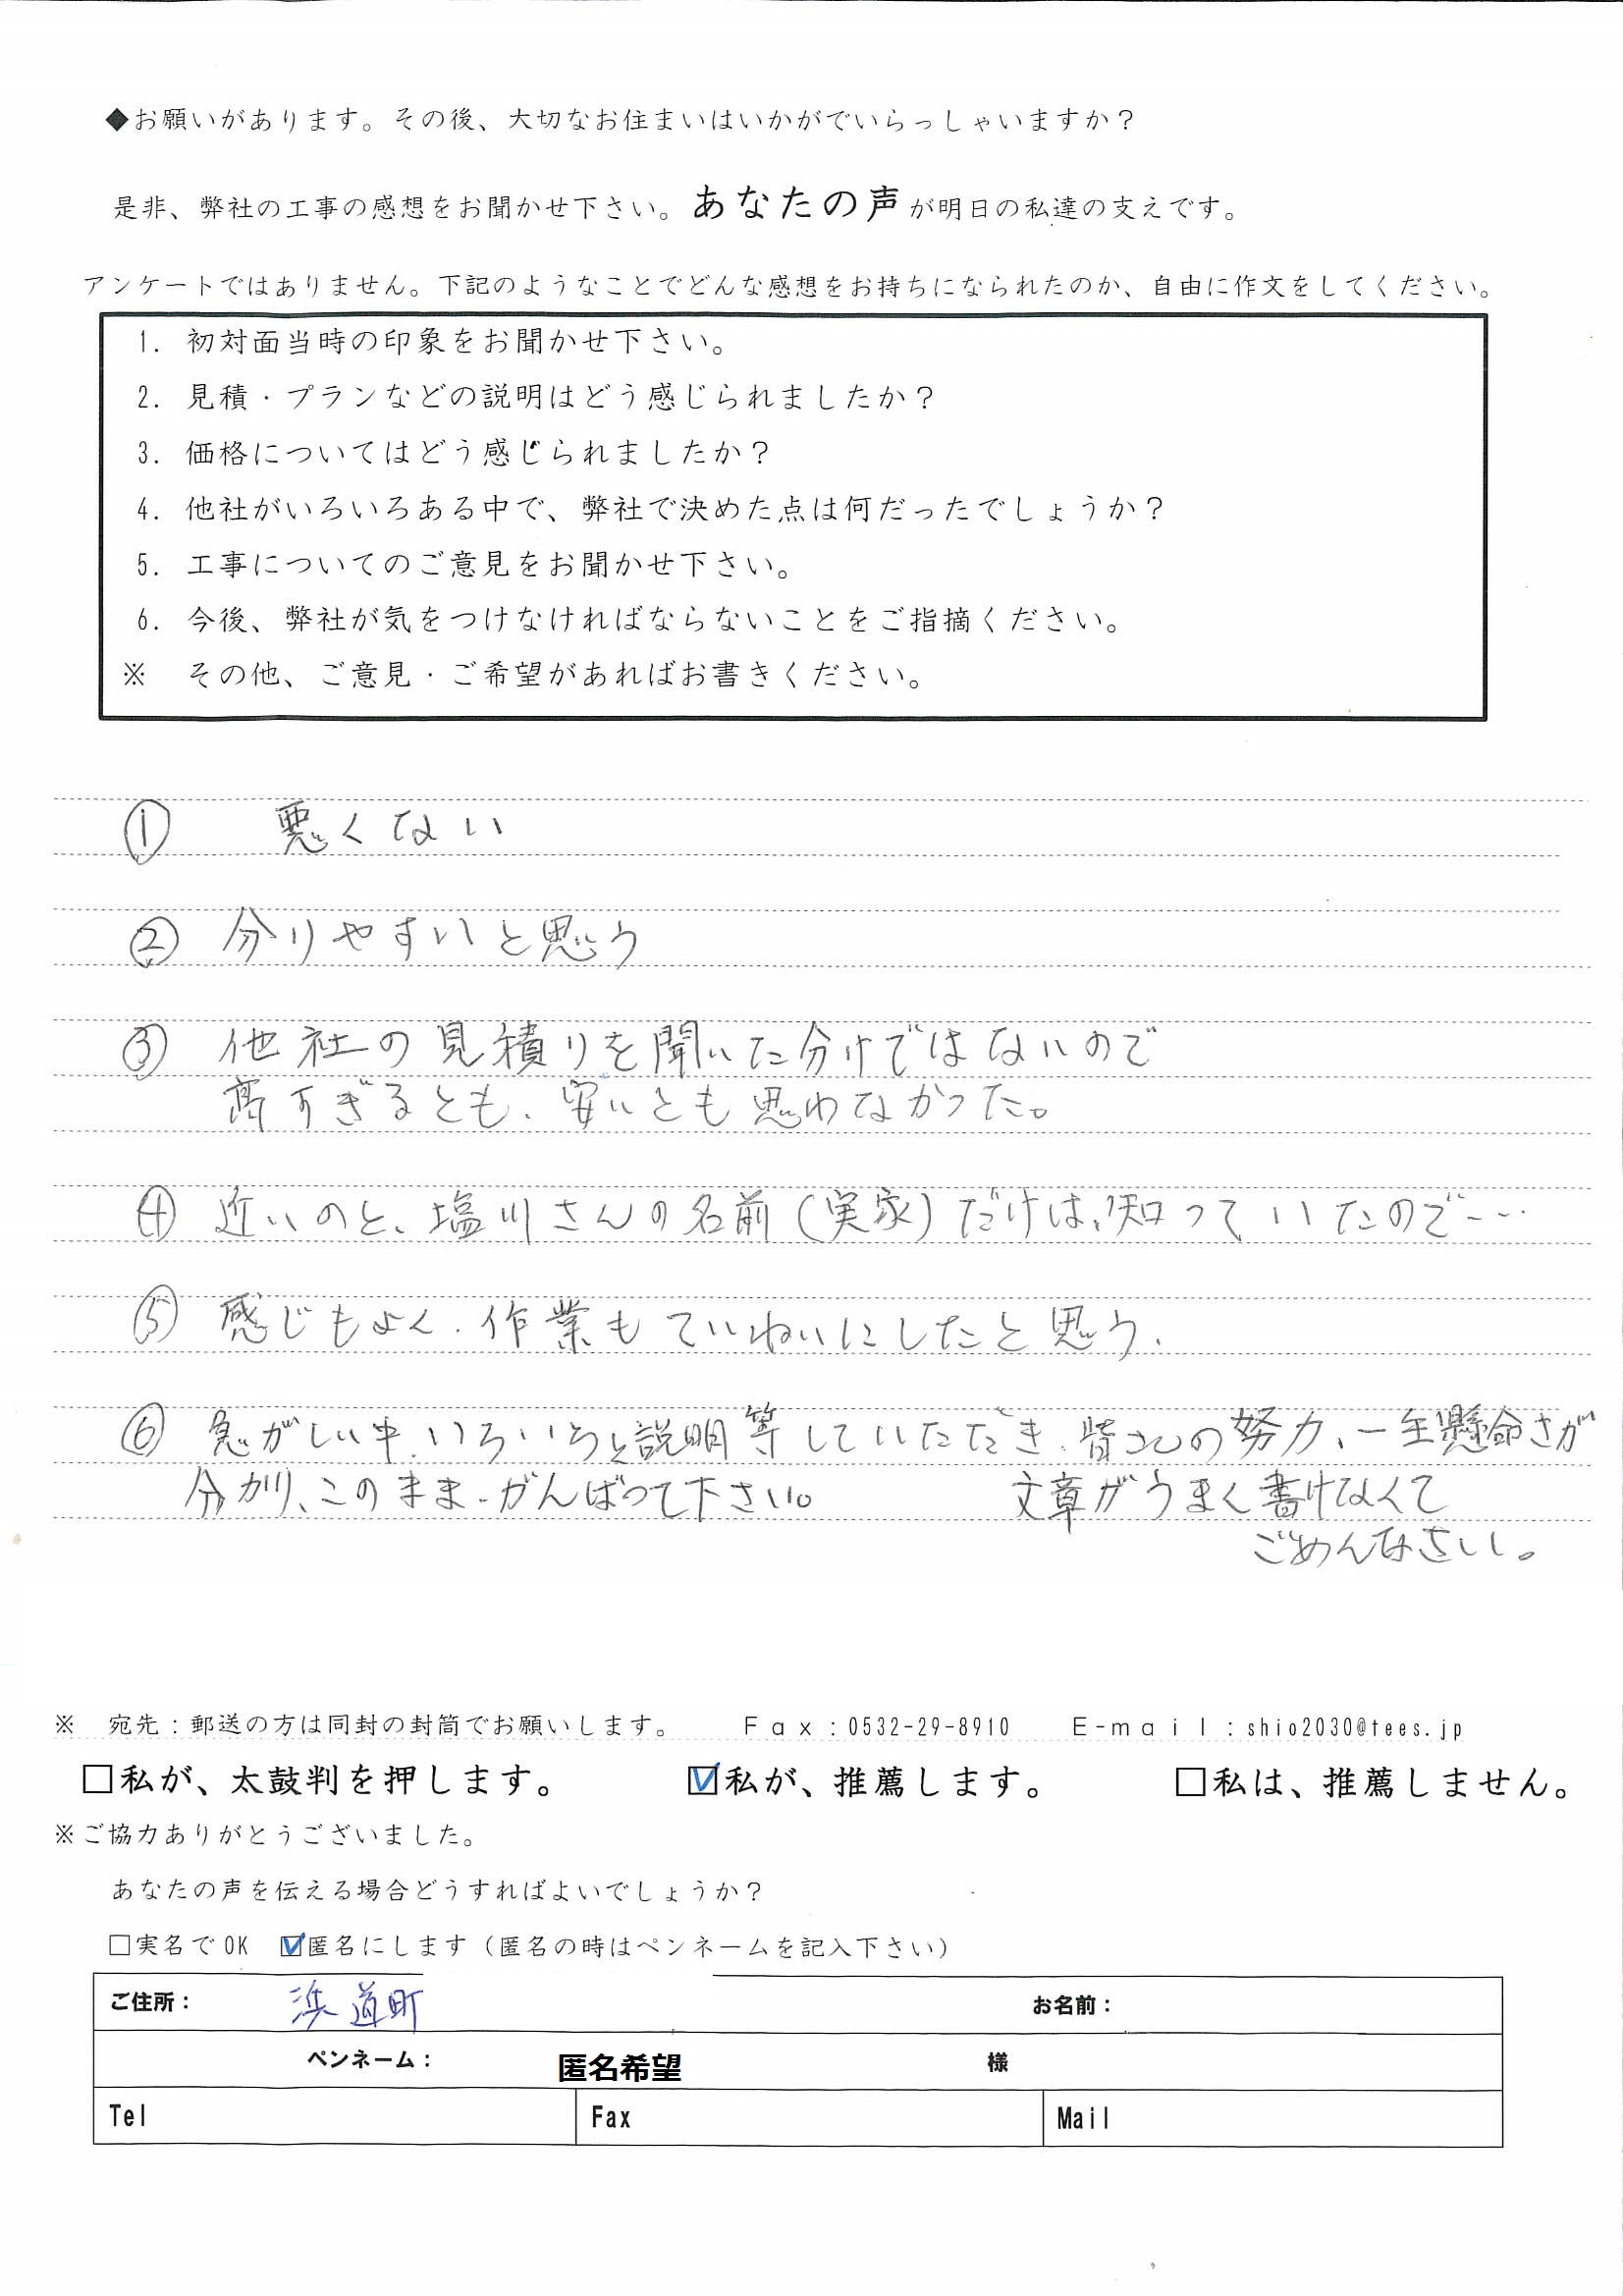 ◆お願いがあります。その後、大切なお住まいはいかがでいらっしゃいますか？
是非、弊社の工事の感想をお聞かせ下さい。あなたの声が明日の私達の支えです。
アンケートではありません。下記のようなことでどんな感想をお持ちになられたのか、自由に作文をしてください。
1. 初対面当時の印象をお聞かせ下さい。
2. 見積・プランなどの説明はどう感じられましたか？
3. 価格についてはどう感じられましたか？
4. 他社がいろいろある中で、弊社で決めた点は何だったでしょうか？
5. 工事についてのご意見をお聞かせ下さい。
6. 今後、弊社が気をつけなければならないことをご指摘ください。
※ その他、ご意見・ご希望があればお書きください。
① 悪くない
② 分りやすいと思う
③ 他社の見積りを聞いた分けではないので
高すぎるとも、安いとも思わなかった。
④ 近いのと、塩川さんの名前(実家)だけは、知っていたので…
⑤ 感じもよく、作業もていねいにしたと思う、
⑥ 急がしい中、いろいろと説明等していただき、皆さんの努力、一生懸命さが
分かり、このまま、がんばって下さい。 文章がうまく書けなくて
ごめんなさいい。
※ 宛先：郵送の方は同封の封筒でお願いします。 Fax：0532-29-8910 E-mail：shio2030@tees.jp
□私が、太鼓判を押します。 ☑私が、推薦します。 □私は、推薦しません。
※ご協力ありがとうございました。
あなたの声を伝える場合どうすればよいでしょうか？
□実名でOK ☑匿名にします（匿名の時はペンネームを記入下さい）
ご住所： 浜道町 お名前：
ペンネーム： 匿名希望 様
Tel Fax Mail